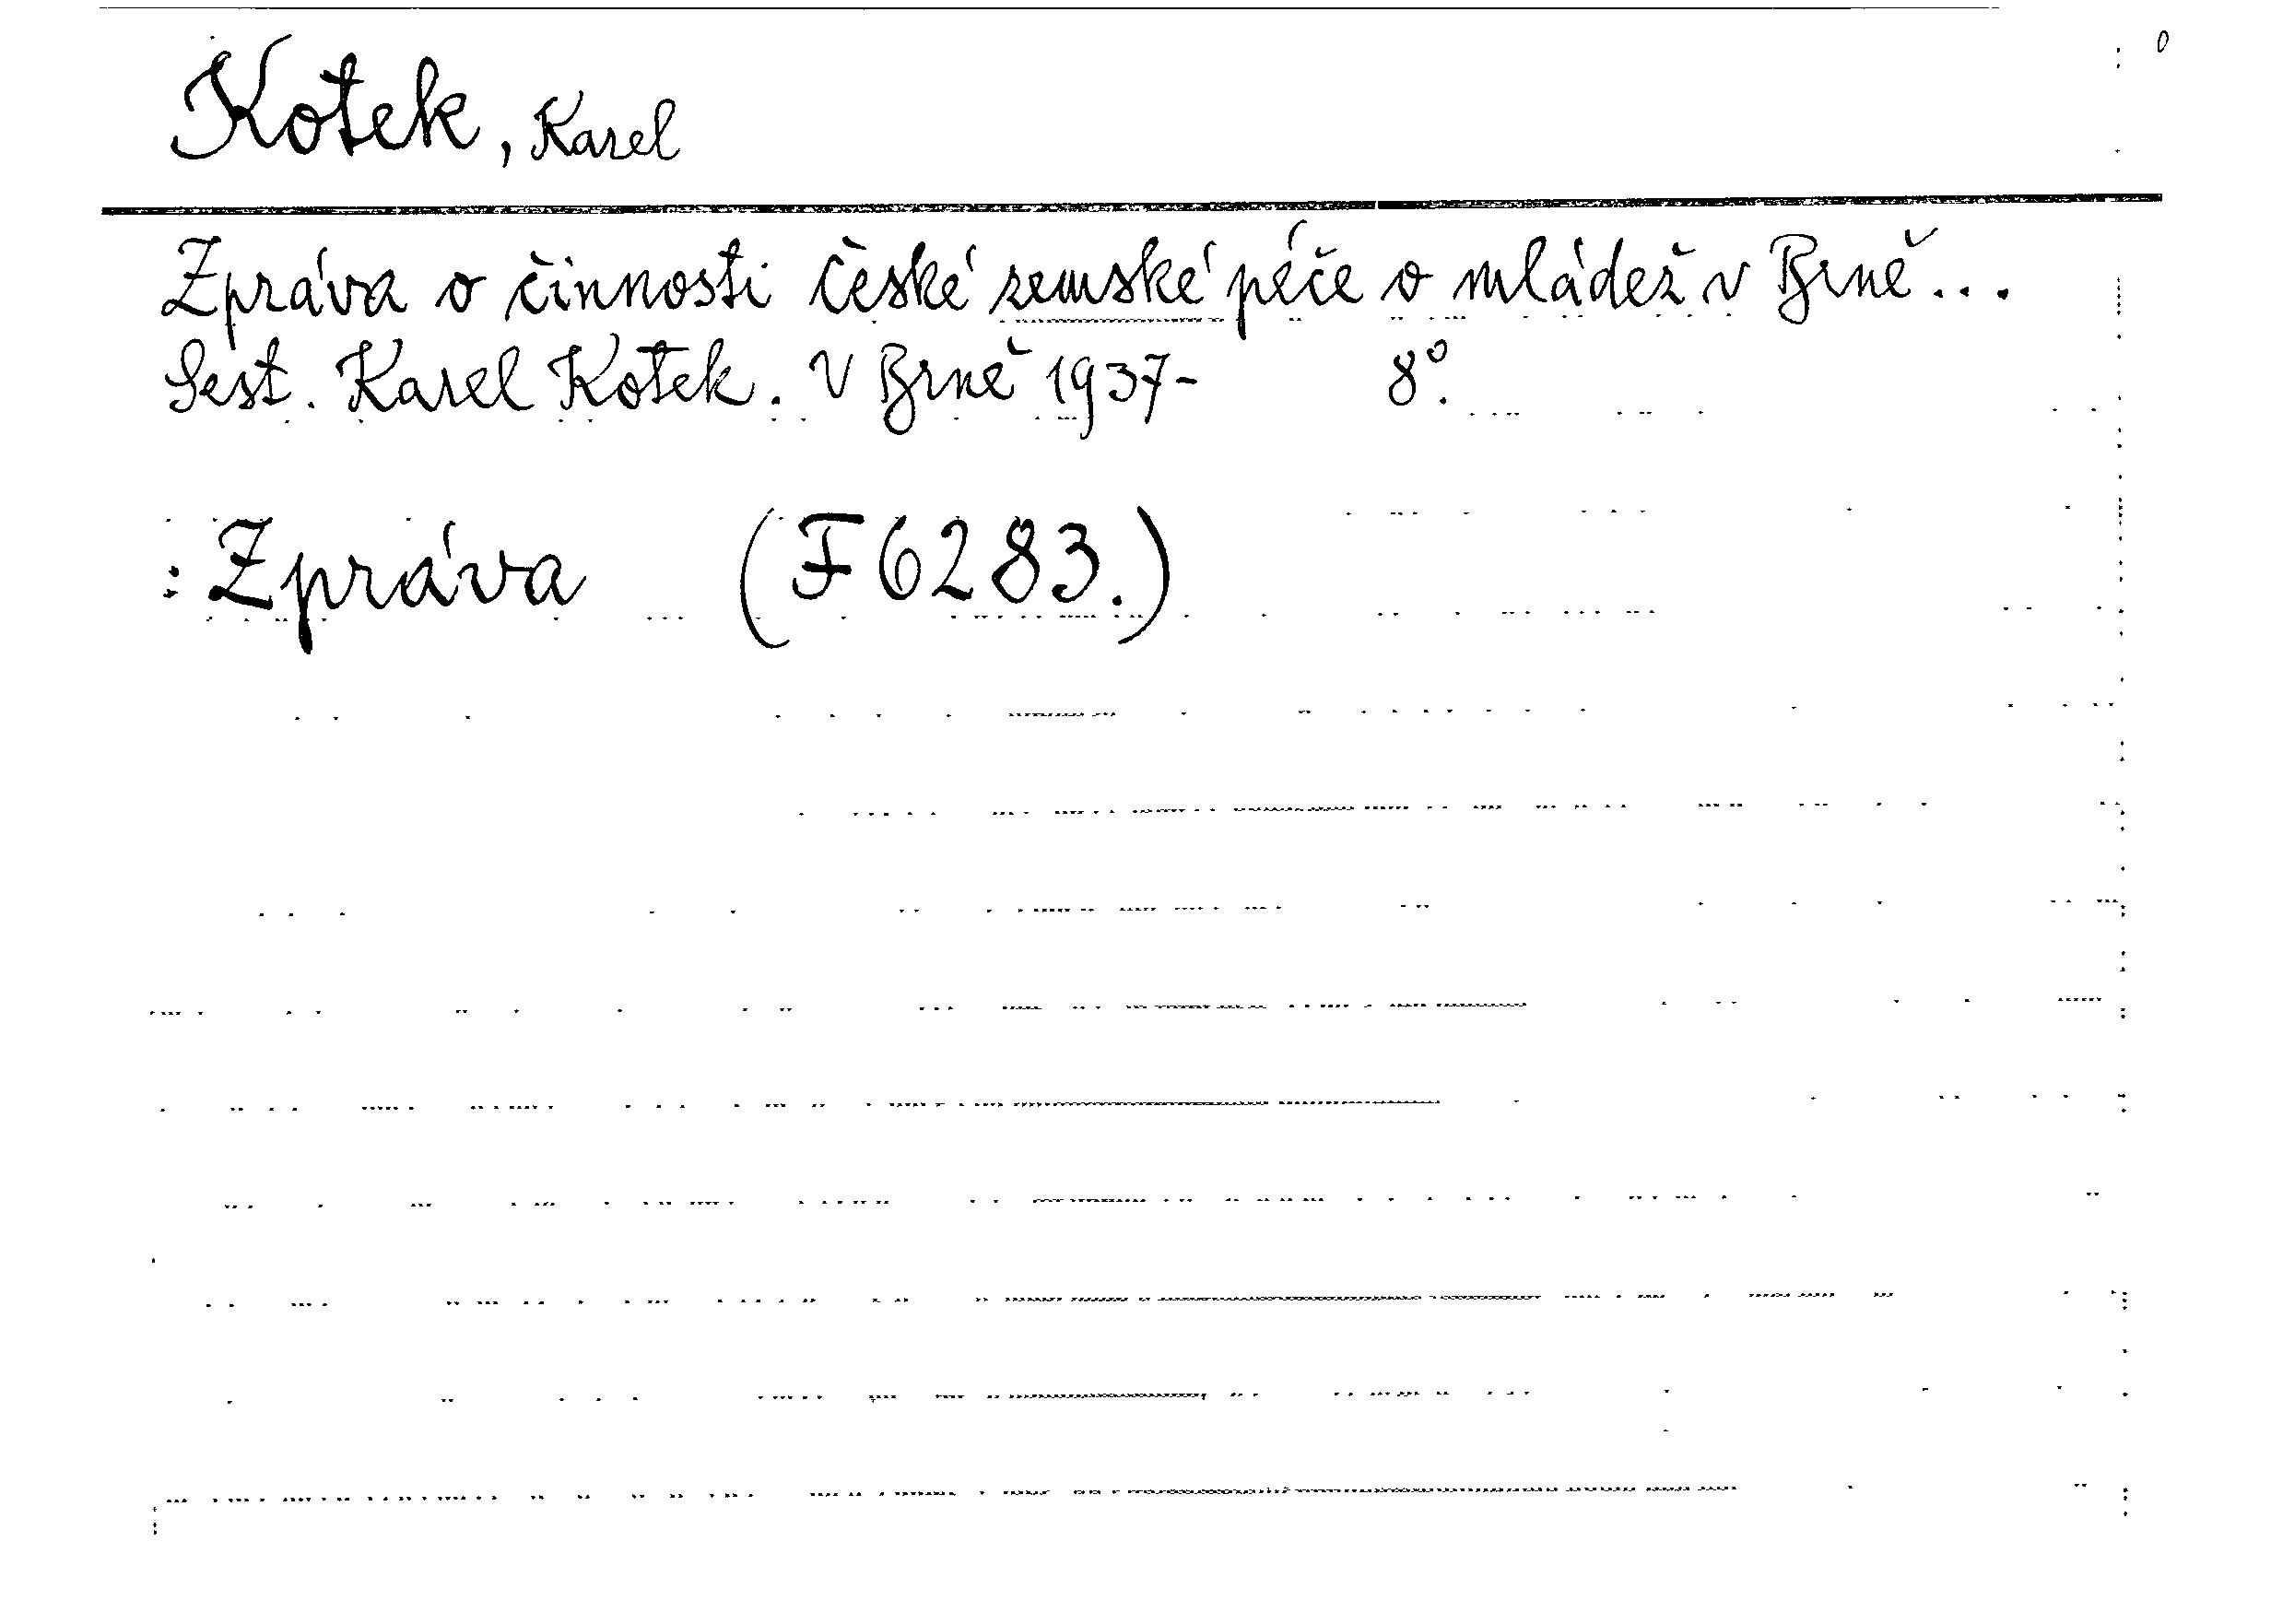 0
Kotek, Karel
Zpráva o činnosti České zemské péče o mládež v Brně...
Sest. Karel Kotek. V Brně 1937- 8°.
: Zpráva (F6283.)